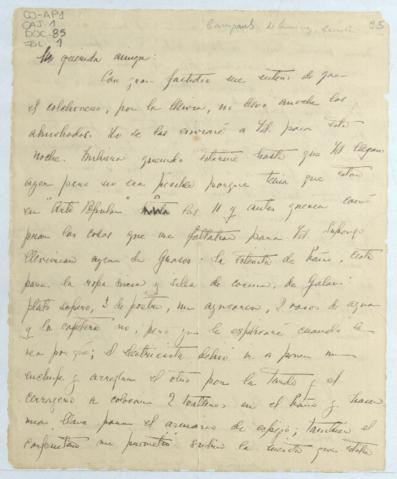 CO-AP1
CAJ-1
DOC-85
FOL-1
95
Mi querida amiga:
Con gran fastidio me entero de que
el colchonero, por la lluvia, no llevó anoche las
almohadas. Yo se las enviaré a Ud. para esta
noche. Hubiera querido esperar hasta que Ud llegara
ayer pero no era posible porque tenía que estar
en "Arte Popular" hasta las 11 y antes quería
las cosas que me faltaban para Ud. Supongo
llevarían ayer de
para la ropa sucia y silla de cocina, de
plato sopero, 2 de postre, un azucarero, 2 vasos de agua
y la cafetera no, pero ya le explicaré cuando la
vea por qué; el electricista debió ir a poner un
enchufe y arreglar el otro por la tarde y el
cerrajero a colocar 2 toalleros en el baño y hacer
una llave para el armario de espejo; también el
carpintero me prometió